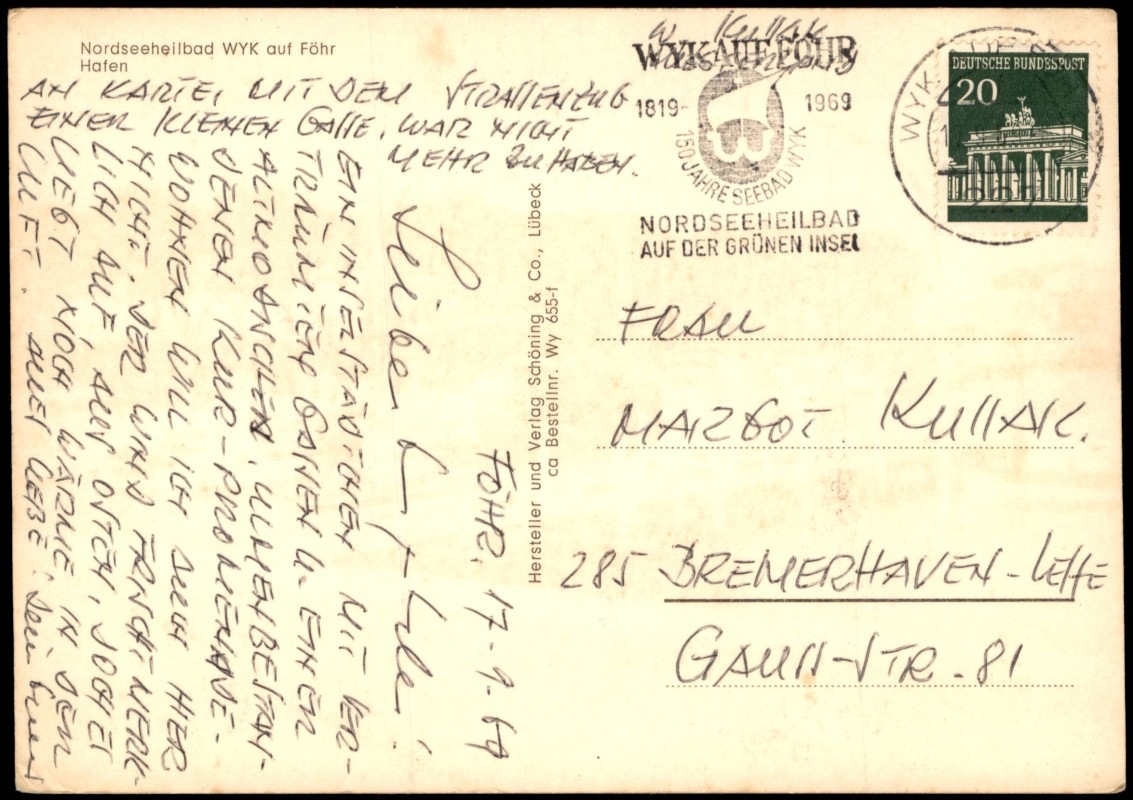 Nordseeheilbad WYK auf Föhr
Hafen
AN KARTE, MIT DEM STRASSENZUG
EINER KLEINEN GASSE, WAR NICHT
MEHR ZU HABEN.
FÖHR. 17-9.69
EIN INSELSTÄDTCHEN MIT VER-
TRÄUMTEN GASSEN U. EINER
ALTMODISCHEN, ULMENBESTAN-
DENEN KUR-PROMENADE-
WOHNEN WILL ICH AUCH HIER
NICHT. DER WIND FRISCHT MERK-
LICH AUF, AUS OSTEN, DOCH ES
LIEGT NOCH WÄRME IN DER
LUFT. ALLES LIEBE: Dein
Hersteller und Verlag Schöning & Co., Lübeck
ca Bestellnr. Wy 655-f
Kullak
WYK AUF FÖHR
1819-1969
150 JAHRE SEEBAD WYK
NORDSEEHEILBAD
AUF DER GRÜNEN INSEL
WYK
DEUTSCHE BUNDESPOST
20
FRAU
MARGOT KULLAK.
285 BREMERHAVEN-Lehe
GAUSS-STR. 81